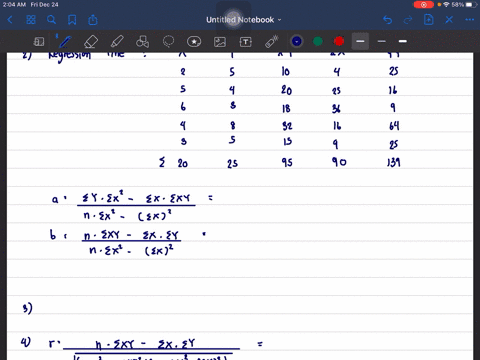 2:04 AM Fri Dec 24
58%
Untitled Notebook
2) Regression line :
2 5 10 4 25
5 4 20 25 16
6 3 18 36 9
4 8 32 16 64
3 5 15 9 25
Σ 20 25 95 90 139
a = ΣY · ΣX² - ΣX · ΣXY =
n · ΣX² - (ΣX)²
b = n · ΣXY - ΣX · ΣY
n · ΣX² - (ΣX)²
3)
4) r = n · ΣXY - ΣX · ΣY =